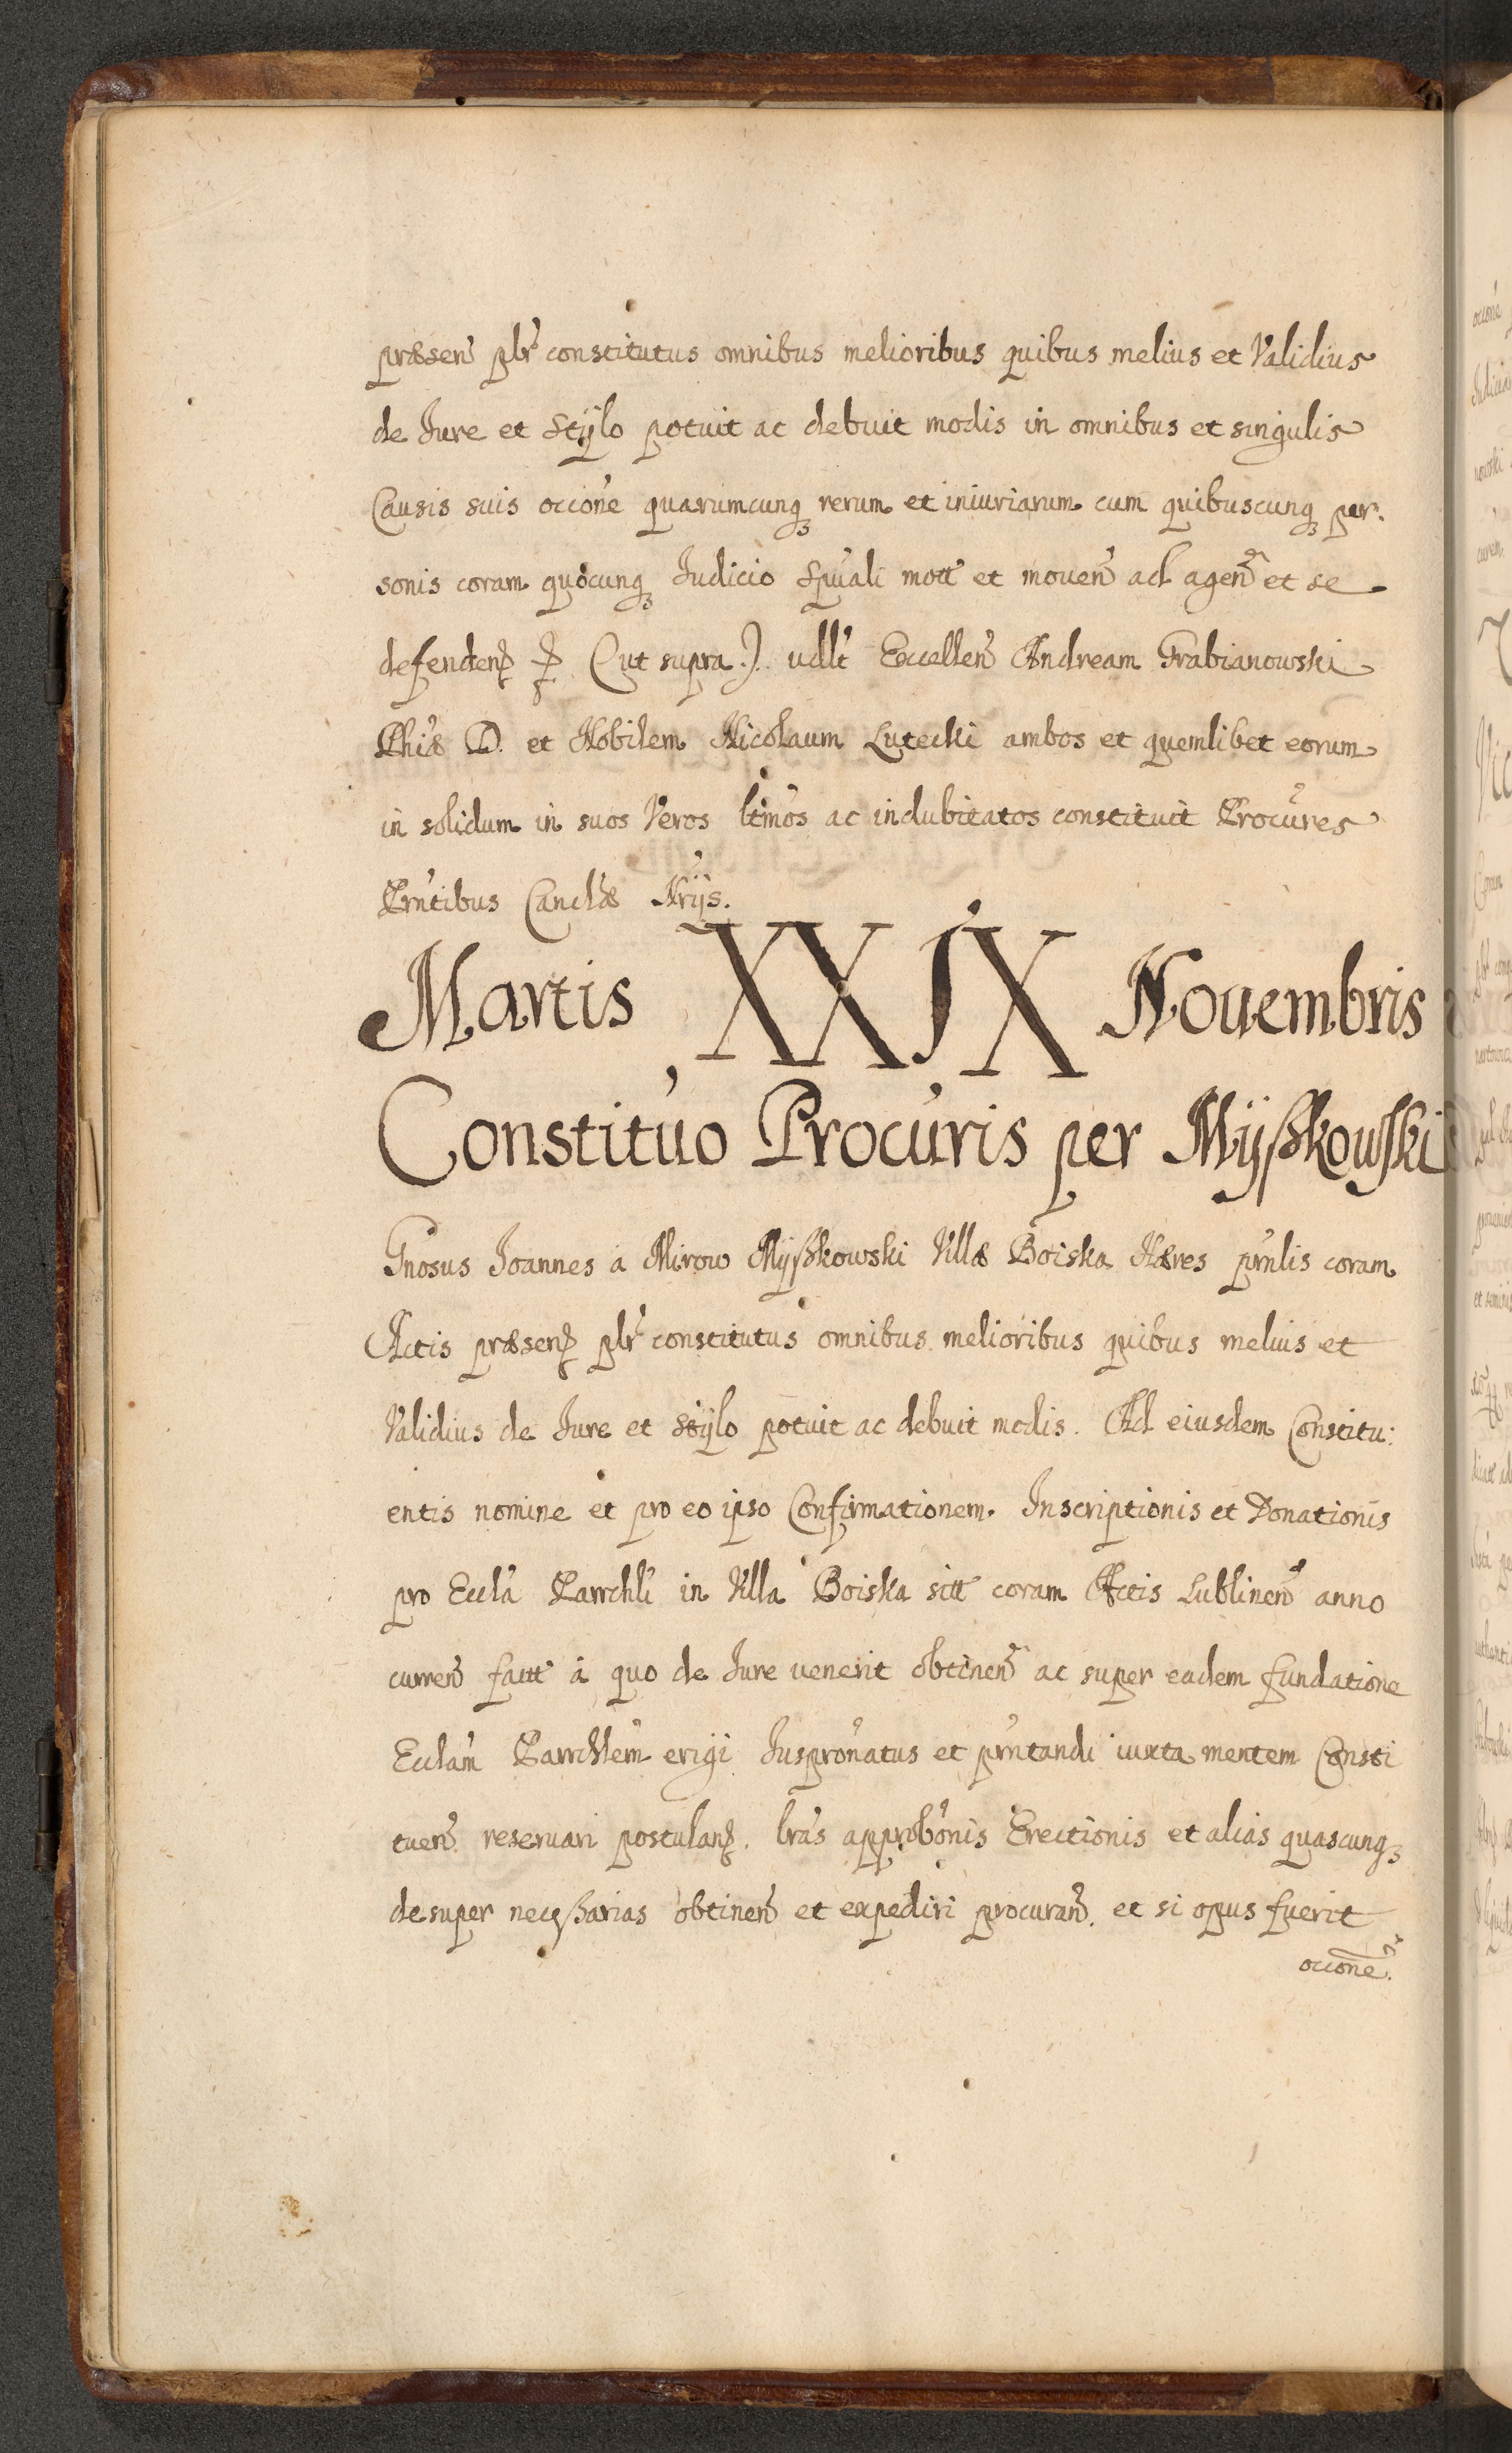 præsen̄ plr̃ constitutus omnibus melioribus quibus melius et Validius
de Iure et Stÿlo potuit ac debuit modis in omnibus et singulis
Causis suis occõne quarumcunqꝫ rerum et iniuriarum cum quibuscunqꝫ per.
sonis coram quocunqꝫ Iudicio Spũali mott̃ et mouen̄ ad agen̄ et se
defenden̄ (ut supra.) vdlt̃ Excellen̄ Andream Grabianowski
Phiæ D. et Nobilem Nicolaum Lutecki ambos et quemlibet eorum
in solidum in suos Veros ltm̃os ac indubitatos constituit Procũres
Prñtibus Canclæ̃ Nrijs.
Martis XXIX Nouembris
Constitũo Procũris per Mÿßkowski
Gnosus Ioannes a Mirow Mÿßkowski Villæ Boiska Hæres prñlis coram
Actis præsen̄ plr̃ constitutus omnibus melioribus quibus melius et
Validius de Iure et Stÿlo potuit ac debuit modis. Ad eiusdem Constitu:
entis nomine et pro eo ipso Confirmationem Inscriptionis et Donationis
pro Eccl̃a Parrchli̇̃ in Villa Boiska sitt̃ coram Actis Lublinen̄ anno
curren̄ factt̃ a quo de Iure venerit obtinen̄ ac super eadem fundatione
Ecclam̃ Parrchlem̃ erigi Iuspron̄atus et prñtandi iuxta mentem Consti
tuen̄ reseruari postulan̄. lrãs approbõnis Erectionis et alias quascunqꝫ
desuper necessarias obtinen̄ et expediri procuran̄. et si opus fuerit
occõne.